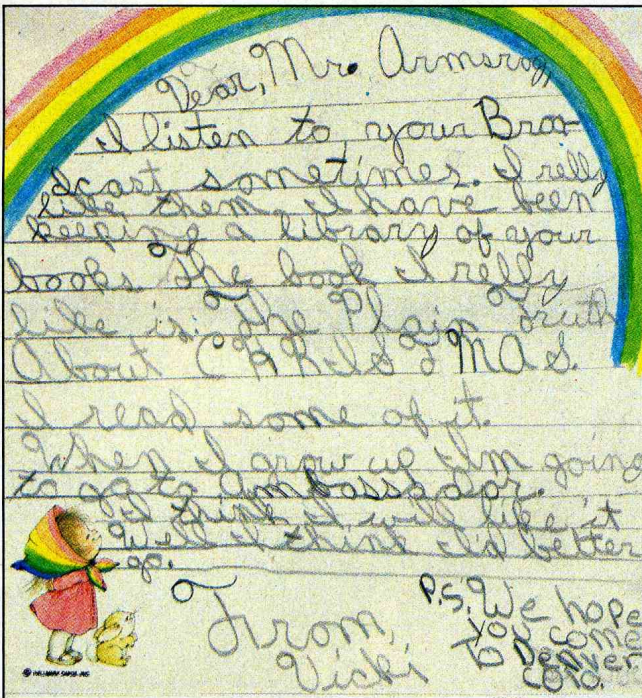 Dear, Mr. Armsrog,
I listen to your Broa-
dcast sometimes. I relly
like them I have been
keeping a library of your
books The book I relly
like is: The Plain Truth
About CHRISTMAS.
I read some of it.
When I grow up I'm going
to go to Ambassador.
I think I will like it
Well I think I'd better
go.
From,
Vicki
P.S. We hope
you come
To Denver
COLO.